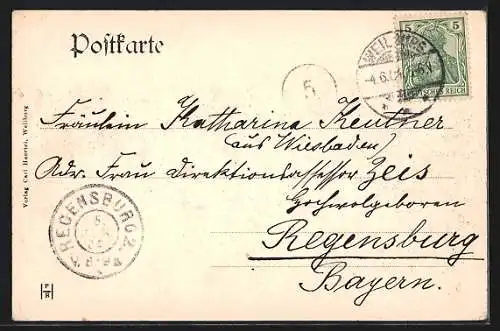 Postkarte
WEILBURG
5 5
DEUTSCHES REICH
5
Fräulein Katharina Keutner
(aus Wiesbaden)
Adr. Frau Direktionsassessor Zeis
Hochwolgeboren
Regensburg
Bayern.
REGENSBURG 2
Verlag Carl Haertel, Weilburg